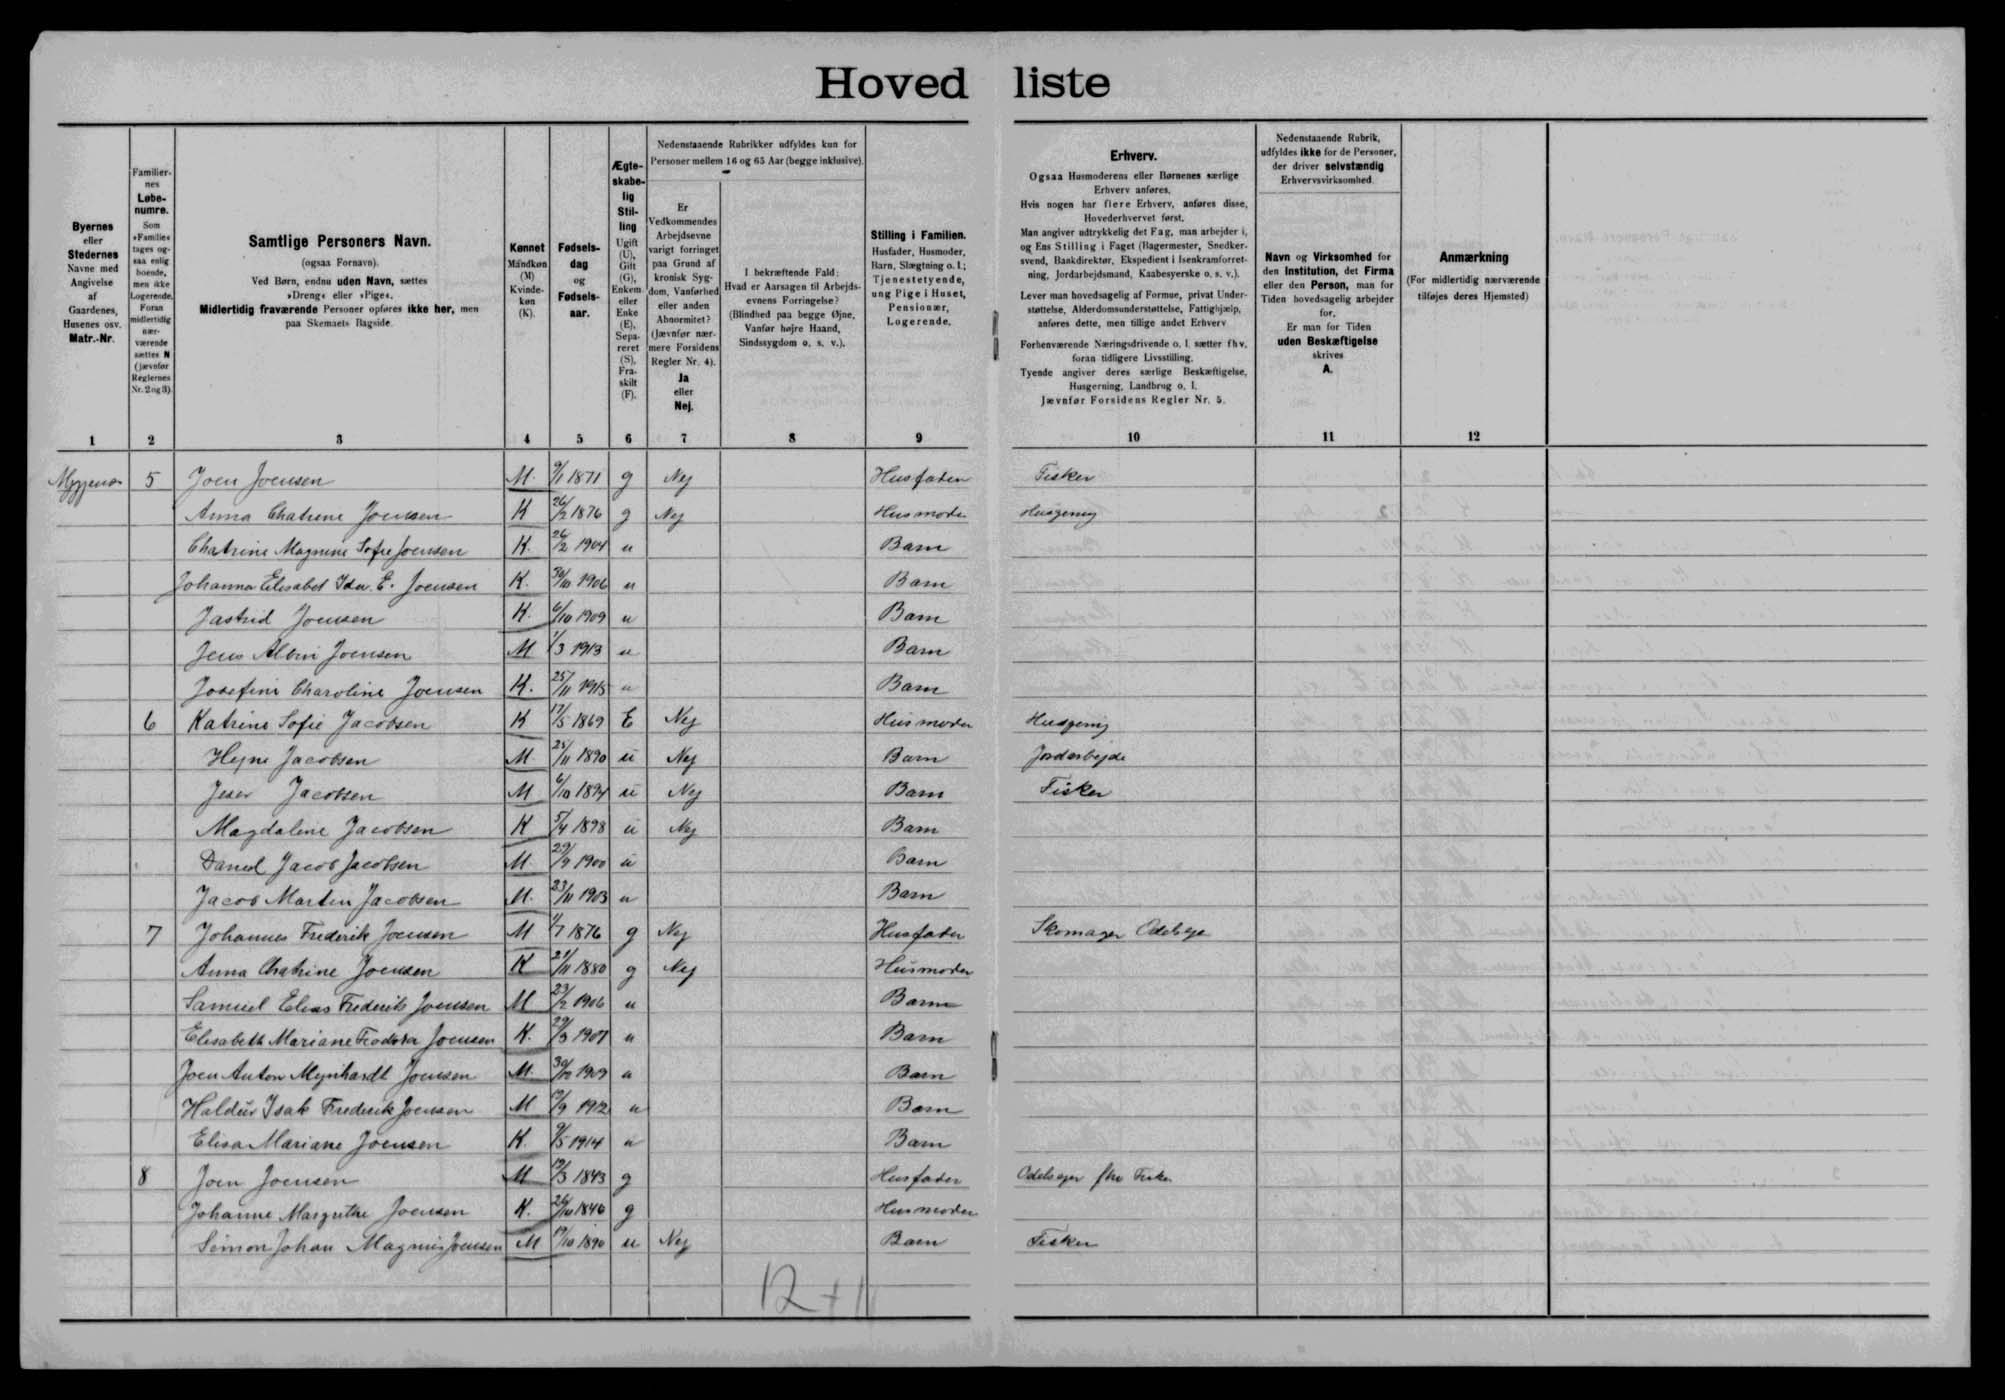 Hovedliste
Byernes
eller
Stedernes
Navne med
Angivelse
af
Gaardenes,
Husenes osv.
Matr.-Nr.
Familier-
nes
Løbe-
numre.
Som
»Familie«
tages og-
saa enlig
boende,
men ikke
Logerende.
Foran
midlertidig
nær-
værende
sættes N
(jævnfør
Reglernes
Nr. 2 og 3)
Samtlige Personers Navn.
(ogsaa Fornavn).
Ved Børn, endnu uden Navn, sættes
»Dreng« eller »Pige«.
Midlertidig fraværende Personer opføres ikke her, men
paa Skemaets Bagside.
Kønnet
Mandkøn
(M)
Kvinde-
køn
(K).
Fødsels-
dag
og
Fødsels-
aar.
Ægte-
skabe-
lig
Stil-
ling
Ugift
(U),
Gift
(G),
Enkem.
eller
Enke
(E),
Sepa-
reret
(S),
Fra-
skilt
(F).
Nedenstaaende Rubrikker udfyldes kun for
Personer mellem 16 og 65 Aar (begge inklusive).
Er
Vedkommendes
Arbejdsevne
varigt forringet
paa Grund af
kronisk Syg-
dom, Vanførhed
eller anden
Abnormitet?
(Jævnfør nær-
mere Forsidens
Regler Nr. 4).
Ja
eller
Nej.
I bekræftende Fald:
Hvad er Aarsagen til Arbejds-
evnens Forringelse?
(Blindhed paa begge Øjne,
Vanfør højre Haand,
Sindssygdom o. s. v.).
Stilling i Familien.
Husfader, Husmoder,
Barn, Slægtning o. l.;
Tjenestetyende,
ung Pige i Huset,
Pensionær,
Logerende.
Erhverv.
Ogsaa Husmoderens eller Børnenes særlige
Erhverv anføres.
Hvis nogen har flere Erhverv, anføres disse,
Hovederhvervet først.
Man angiver udtrykkelig det Fag, man arbejder i,
og Ens Stilling i Faget (Bagermester, Snedker-
svend, Bankdirektør, Ekspedient i Isenkramforret-
ning, Jordarbejdsmand, Kaabesyerske o. s. v.).
Lever man hovedsagelig af Formue, privat Under-
støttelse, Alderdomsunderstøttelse, Fattighjælp,
anføres dette, men tillige andet Erhverv
Forhenværende Næringsdrivende o. l. sætter fhv.
foran tidligere Livsstilling.
Tyende angiver deres særlige Beskæftigelse,
Husgerning, Landbrug o. l.
Jævnfør Forsidens Regler Nr. 5.
Nedenstaaende Rubrik,
udfyldes ikke for de Personer,
der driver selvstændig
Erhvervsvirksomhed.
Navn og Virksomhed for
den Institution, det Firma
eller den Person, man for
Tiden hovedsagelig arbejder
for.
Er man for Tiden
uden Beskæftigelse
skrives
A.
Anmærkning
(For midlertidig nærværende
tilføjes deres Hjemsted)
1 2 3 4 5 6 7 8 9 10 11 12
5 Joen Joensen M. 9/1 1871 g Nej Husfader Fisker
Anna Chatrine Joensen K 26/2 1876 g Nej Husmoder Husgerning
Chatrine Magnine Sofie Joensen K. 26/2 1904 u Barn
Johanna Elisabet Ida. E. Joensen K. 30/10 1906 u Barn
Jastrid Joensen K. 6/10 1909 u Barn
Jens Albin Joensen M 1/3 1913 u Barn
Josefine Charoline Joensen K. 25/11 1915 u Barn
6 Katrine Sofie Jacobsen K 17/5 1869 E Nej Husmoder Husgernig
Hejne Jacobsen M. 25/11 1890 u Nej Barn Jordarbejde
Jacobsen M 6/10 1894 u Nej Barn Fisker
Magdaline Jacobsen K 5/4 1898 u Nej Barn
Daniel Jacob Jacobsen M. 29/9 1900 u Barn
Jacob Martin Jacobsen M. 23/11 1903 u Barn
7 Johannes Frederik Joensen M 1/7 1876 g Nej Husfader Skomager Odelseje
Anna Chatrine Joensen K 21/11 1880 g Nej Husmoder
Samuel Elias Frederik Joensen M 23/2 1906 u Barn
Elisabeth Mariane Teodora Joensen K. 29/3 1907 u Barn
Joen Anton Mejnhardt Joensen M. 30/10 1909 u Barn
Haldur Isak Frederik Joensen M 19/9 1912 u Barn
Elisa Mariane Joensen K. 9/5 1914 u Barn
8 Joen Joensen M 19/3 1843 g Husfader Odelsejer fhv Fisker
Johanne Margrethe Joensen K. 26/10 1846 g Husmoder
Simon Johan Magnus Joensen M 19/10 1890 u Nej Barn Fisker
12 + 11